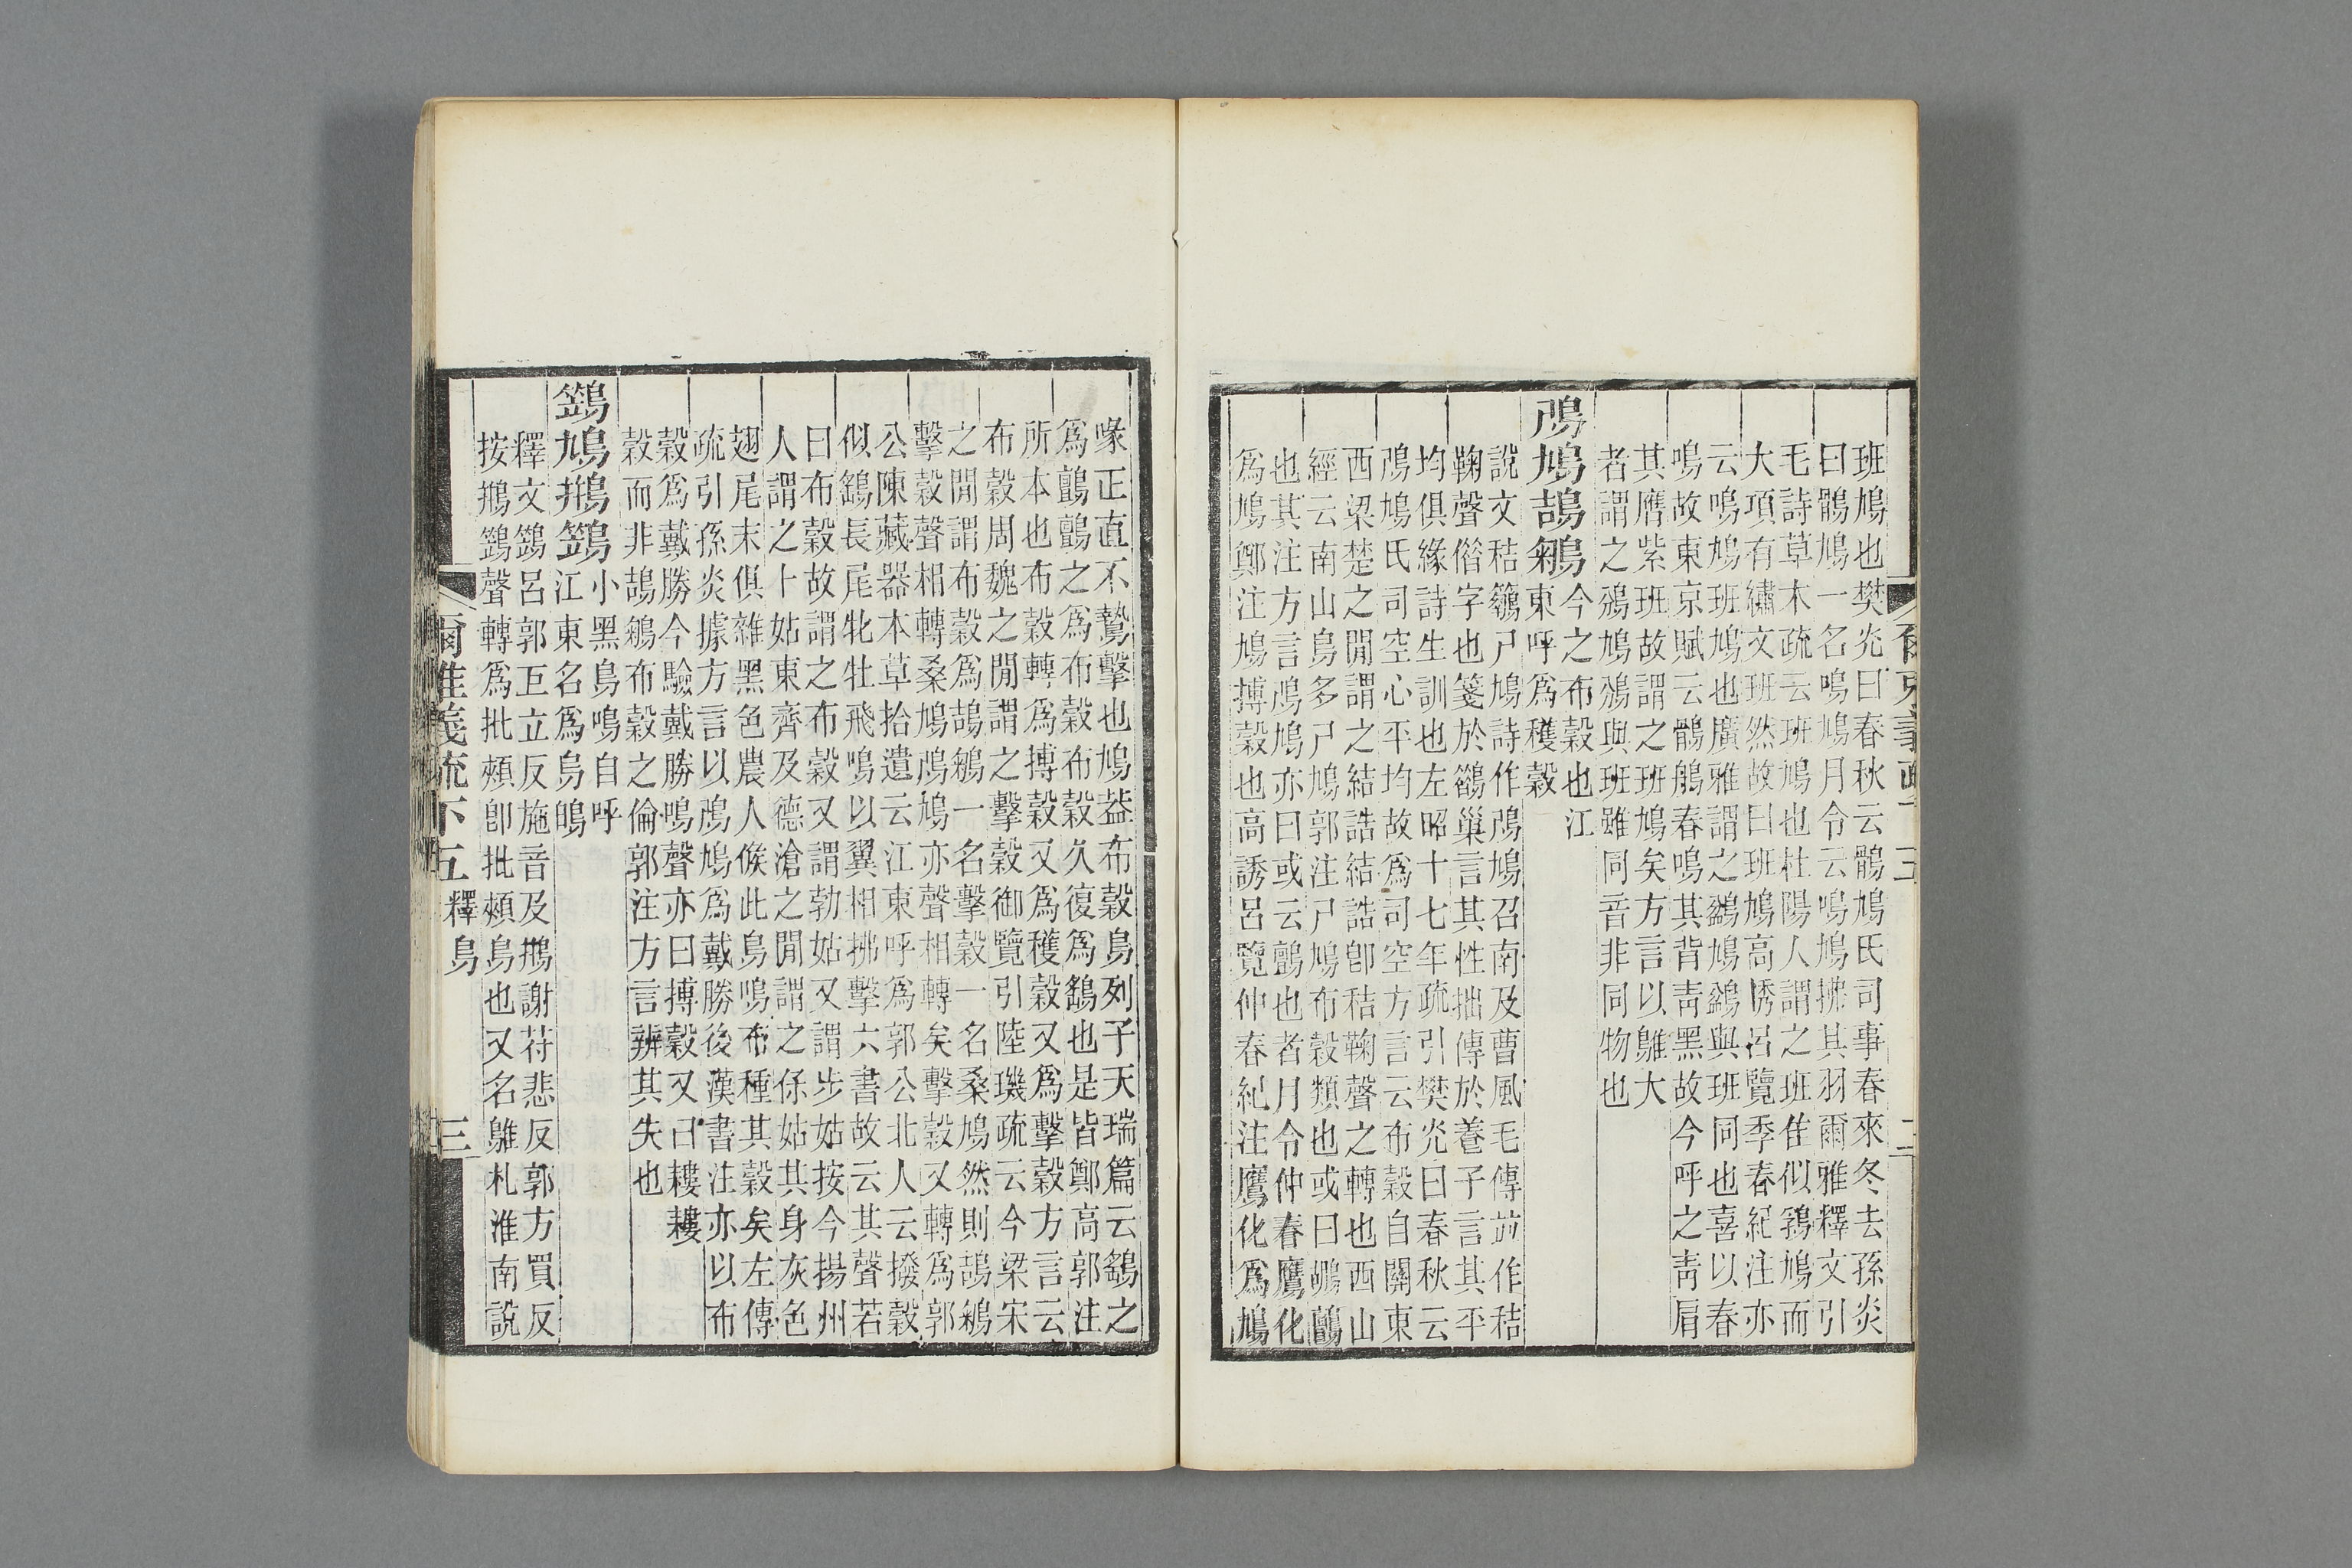 班鳩也樊光曰春秋云鶻鳩氏司事春來冬去孫炎
曰鶻鳩一名鳴鳩月令云鳴鳩拂其羽爾雅釋文引
毛詩草木疏云班鳩也杜陽人謂之班隹似鶉鳩而
大項有繡文班然故曰班鳩高誘呂覽季春紀注亦
云鳴鳩班鳩也廣雅謂之鷁鳩鷁與班同也喜以春
鳴故東京賦云鶻鵃春鳴其背青黑故今呼之靑肩
其膺紫班故謂之班鳩矣方言以鵻大
者謂之鳻鳩鳻與班雖同音非同物也
鳲鳩鴶鵴今之布穀也江
東呼爲穫穀
說文秸鵴尸鳩詩作鳲鳩召南及曹風毛傳竝作秸
鞠聲偕字也箋於鵲巢言其性拙傳於養子言其平
均俱緣詩生訓也左昭十七年疏引樊光曰春秋云
鳲鳩氏司空心平均故爲司空方言云布穀自關東
西梁楚之閒謂之結誥結誥卽秸鞠聲之轉也西山
經云南山鳥多尸鳩郭注尸鳩布穀類也或曰鶘鸇
也其注方言鳲鳩亦曰或云鸇也者月令仲春鷹化
爲鳩鄭注鳩搏穀也高誘呂覽仲春紀注鷹化爲鳩
喙正直不鷙擊也鳩葢布穀鳥列子天瑞篇云鷂之
爲鸇鸇之爲布穀布穀久復爲鷂也是皆鄭高郭注
所本也布穀轉爲搏穀又爲穫穀又爲擊穀方言云
布穀周魏之閒謂之擊穀御覽引陸璣疏云今梁宋
之閒謂布穀爲鴶鵴一名擊穀一名桑鳩然則鴶鵴
擊穀聲相轉桑鳩鳲鳩亦聲相轉矣擊穀又轉爲郭
公陳藏器本草拾遺云江東呼爲郭公北人云撥穀
似鷂長尾牝牡飛鳴以翼相拂擊六書故云其聲若
曰布穀故謂之布穀又謂勃姑又謂步姑按今揚州
人謂之卜姑東齊及德滄之閒謂之保姑其身灰色
翅尾末俱雜黑色農人候此鳥鳴布種其穀矣左傳
疏引孫炎據方言以鳲鳩爲戴勝後漢書注亦以布
穀爲戴勝今驗戴勝鳴聲亦曰搏穀又曰耬耬
穀而非鴶鵴布穀之倫郭注方言辨其失也
鷑鳩鵧鷑小黑鳥鳴自呼
江東名爲烏鴖
釋文鷑呂郭亙立反施音及鵧謝苻悲反郭方買反
按鵧鷑聲轉爲批頰卽批頰鳥也又名鵻札淮南說
爾雅箋疏下五 釋鳥 三